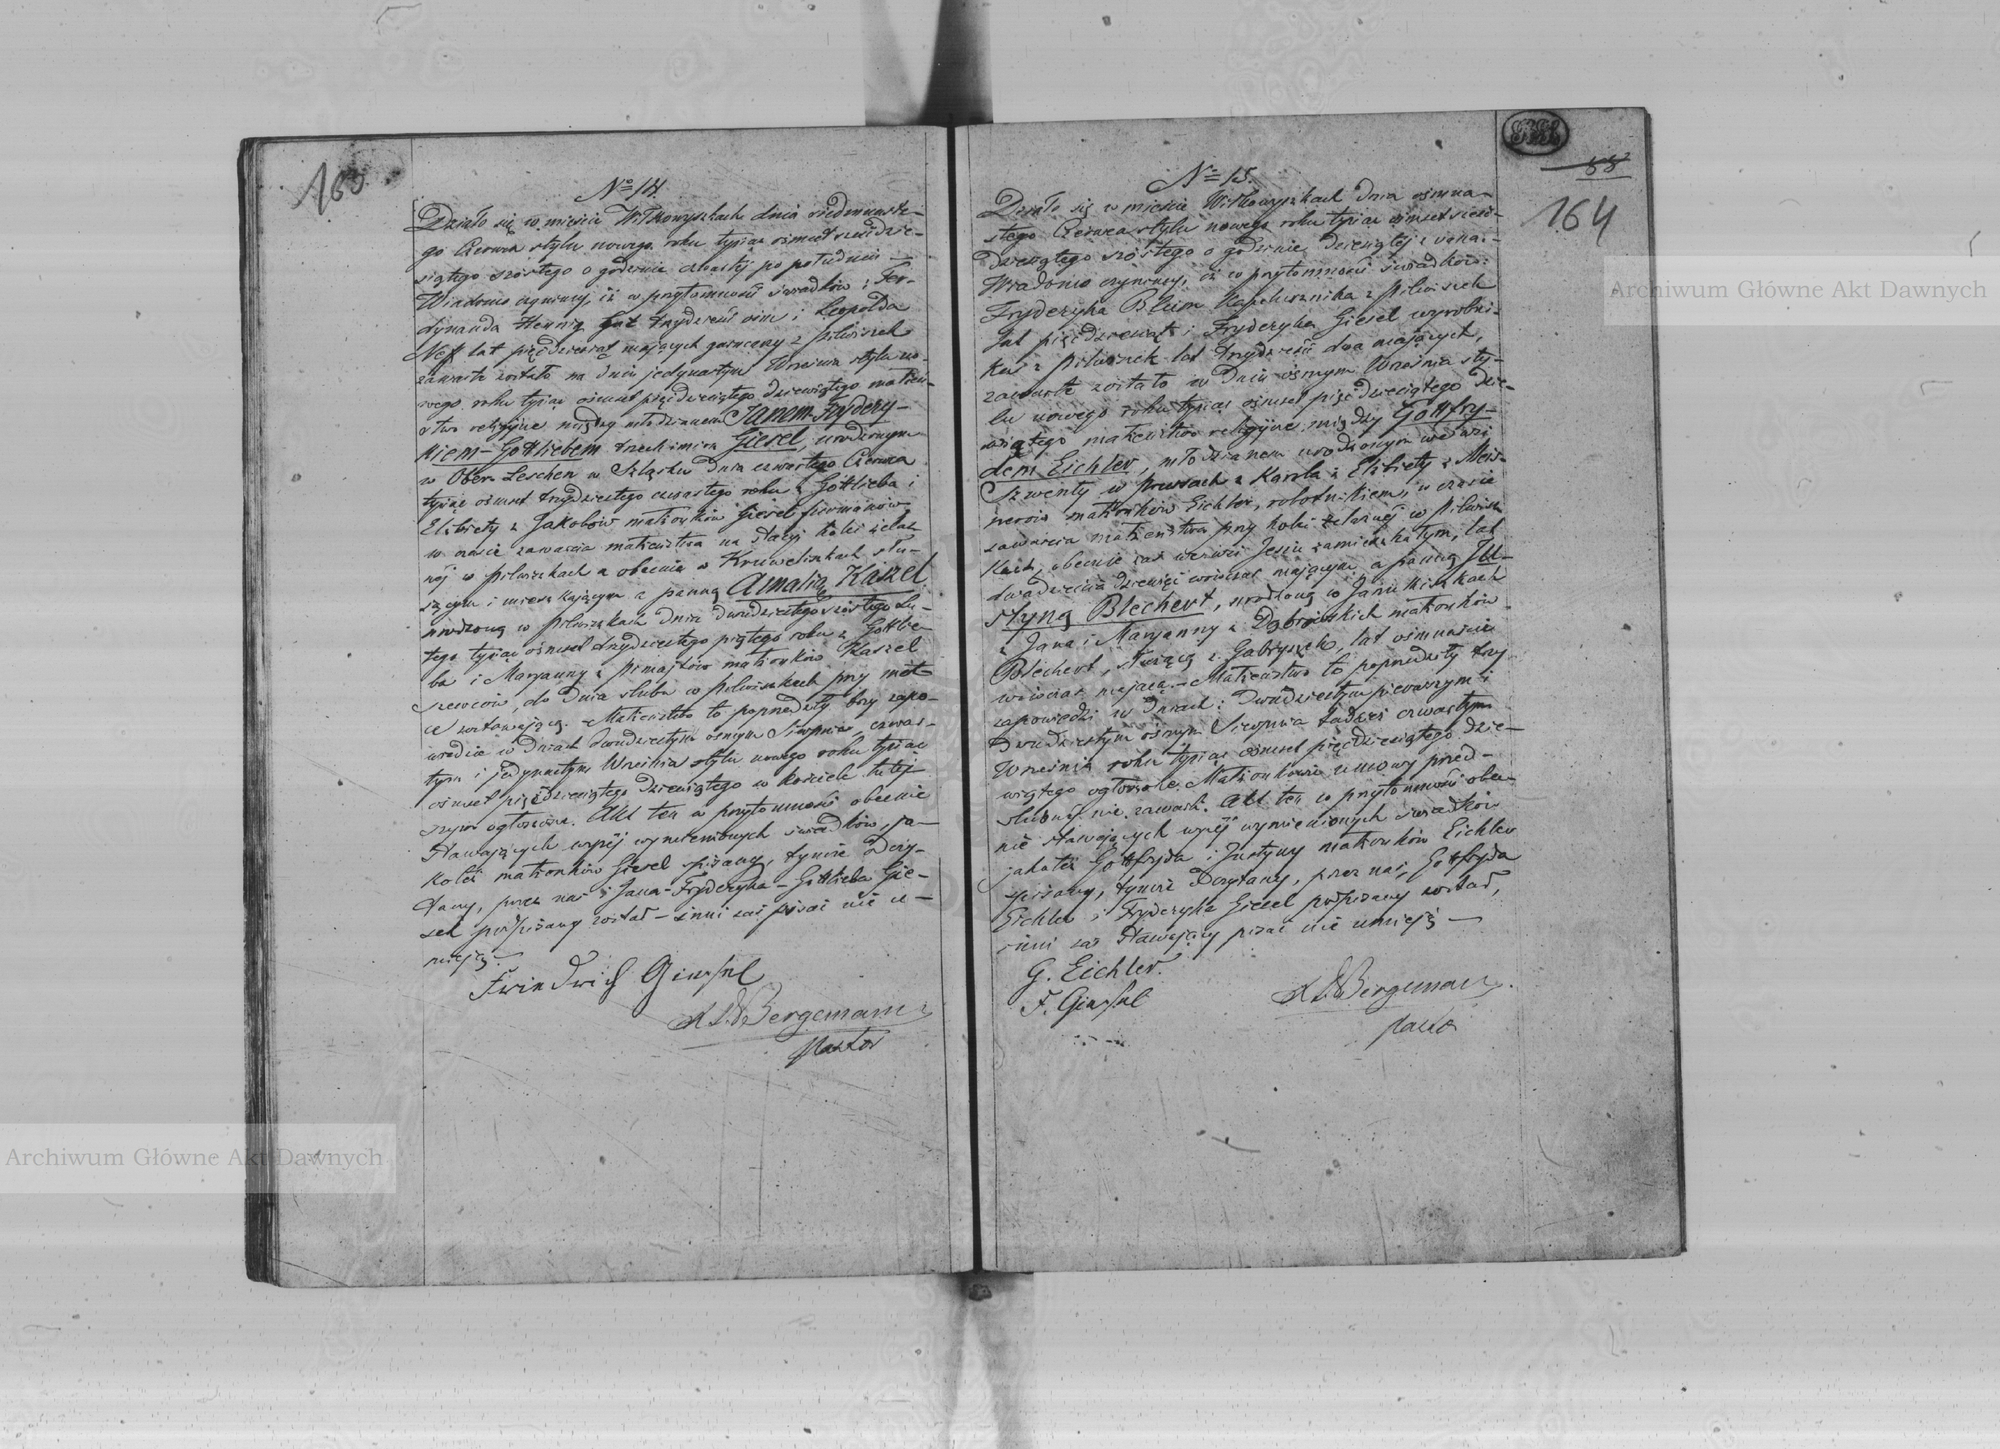 163
No 14
Działo się w mieście Wiłkowyszkach dnia siedmnaste-
go Czerwca stylu nowego roku tysiąc ośmset sześćdzie-
siątego szóstego o godzinie czwartej po południu —
Wiadomo czynimy, iż w przytomności świadków: Fer-
dynanda Hennig lat trzydzieści ośm i Leopolda
Neff lat pięćdziesiąt mających garncarzy z Pilwiszek
zawarte zostało na dniu jedynastym Września stylu no-
wego roku tysiąc ośmset pięćdziesiątego dziewiątego małżeń-
stwo religijne między młodzianem Janem-Frydery-
kiem-Gottliebem trzech imion Giesel, urodzonym
w Ober-Leschen w Szląsku dnia czwartego Czerwca
tysiąc ośmset trzydziestego czwartego roku z Gottlieba i
Elżbiety z Jakobów małżonków Giesel furmanów
w czasie zawarcia małżeństwa na stacyi kolei żelaz-
nej w Pilwiszkach a obecnie w Kruwelinkach słu-
żącym i mieszkającym a panną Amalią Kaszel
urodzoną w Pilwiszkach dnia dwudziestego szóstego Lu-
tego tysiąc ośmset trzydziestego piątego roku z Gottlie-
ba i Maryanny z małżonków Kaszel
szewców, do dnia ślubu w Pilwiszkach przy mat-
ce zostawającą. Małżeństwo to poprzedziły trzy zapo-
wiedzie w dniach dwudziestym ósmym Sierpnia, czwar-
tym i jedynastym Września stylu nowego roku tysiąc
ośmset pięćdziesiątego dziewiątego w kościele tutej-
szym ogłoszone. Akt ten w przytomności obecnie
stawających wyżej wymienionych świadków, ja-
koteż małżonków Giesel spisany, tymże odczy-
tany, przez nas i Jana-Fryderyka-Gottlieba Gie-
sel podpisany został — inni zaś pisać nie u-
mieją. —
Friedrich Giesel
Bergemann
Pastor
88
164
No 15.
Działo się w mieście Wiłkowyszkach dnia ośmna-
stego Czerwca stylu nowego roku tysiąc ośmset sześć-
dziesiątego szóstego o godzinie dziewiątej z rana. —
Wiadomo czynimy, iż w przytomności świadków:
Fryderyka Blum Kapelusznika z Pilwiszek
lat pięćdziesiąt i Fryderyka Giesel wyrobni-
ka z Pilwiszek lat trzydzieści dwa mających,
zawarte zostało w dniu ósmym Września sty-
lu nowego roku tysiąc ośmset pięćdziesiątego dzie-
wiątego małżeństwo religijne między Gottfry-
dem Eichler, młodzianem urodzonym we wsi
Szwenty w Prussach z Karola i Elżbiety z Meis-
nerów małżonków Eichler, robotnikiem, w czasie
zawarcia małżeństwa przy kolei żelaznej w Pilwisz-
kach, obecnie zaś we wsi Jesiu zamieszkałym, lat
dwadzieścia dziewięć wówczas mającym a panną Ju-
styną Blechert, urodzoną w Janukiszkach
z Jana i Maryanny z Dąbrowskich małżonków
Blechert, służącą z Gabryszek, lat ośmnaście
wówczas mającą. — Małżeństwo to poprzedziły trzy
zapowiedzi w dniach: dwudziestym pierwszym i
dwudziestym ósmym Sierpnia tudzież czwartym
Września roku tysiąc ośmset pięćdziesiątego dzie-
wiątego ogłoszone. Małżonkowie umowy przed-
ślubnej nie zawarli. Akt ten w przytomności obec-
nie stawających wyżej wymienionych świadków
jakoteż Gottfryda i Justyny małżonków Eichler
spisany, tymże odczytany, przez nas, Gottfryda
Eichler i Fryderyka Giesel podpisany został,
inni zaś stawający pisać nie umieją —
G. Eichler.
F. Giesel
Bergemann.
Pastor
Archiwum Główne Akt Dawnych
Archiwum Główne Akt Dawnych